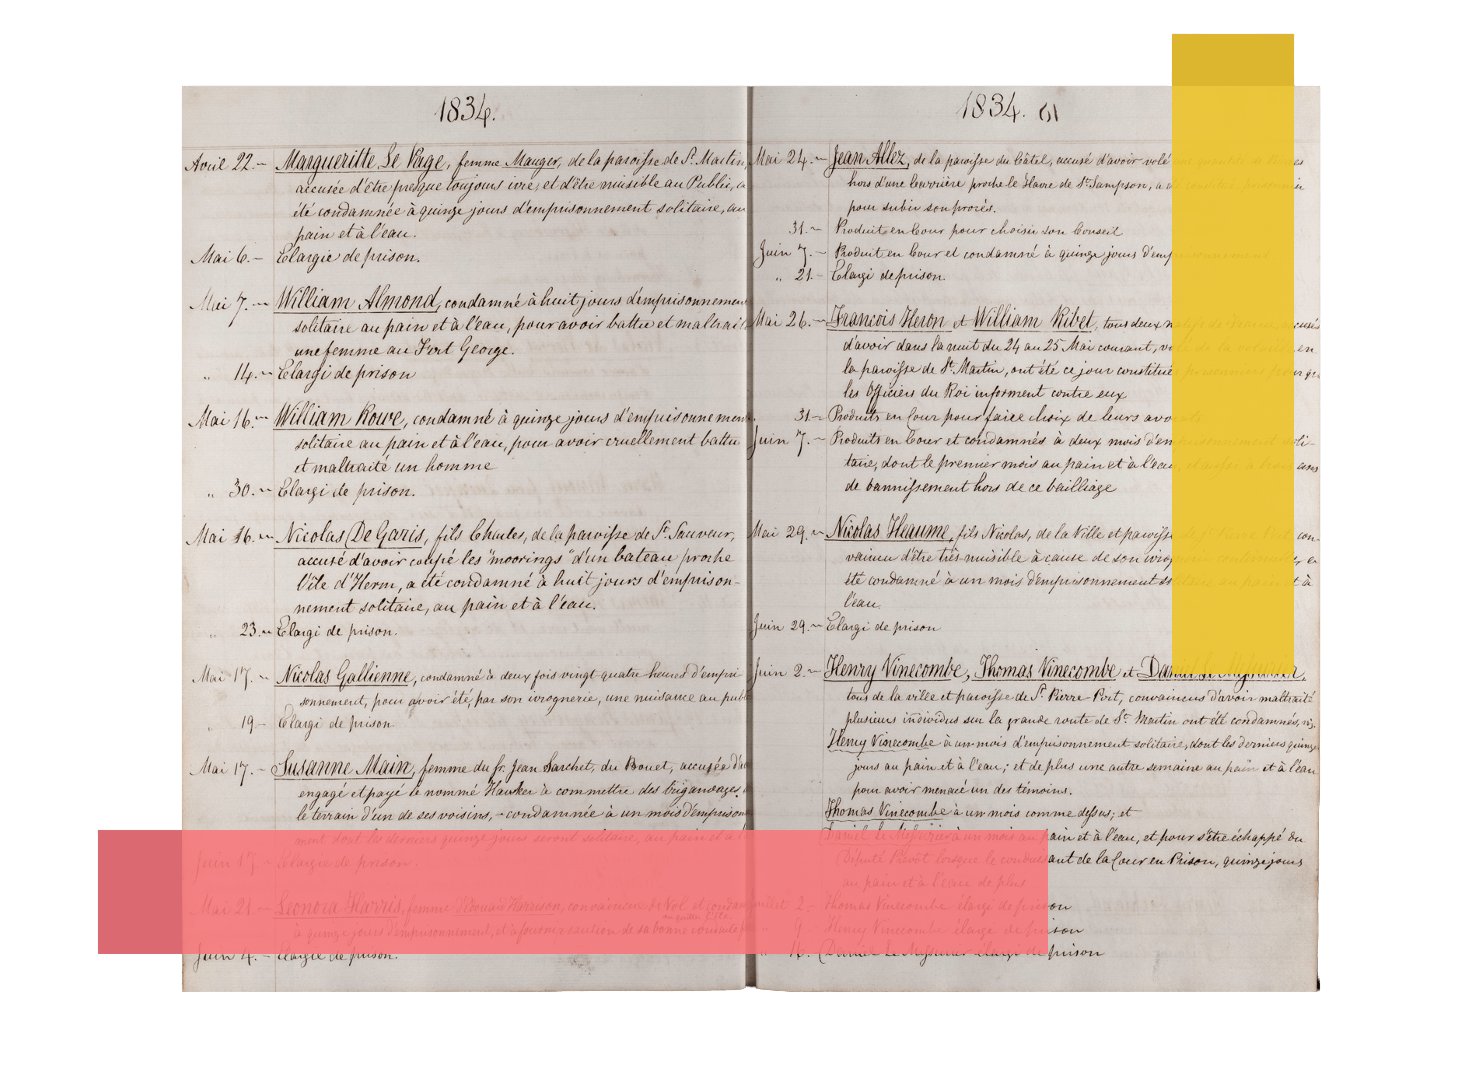 1834.
Avril 22.— Margueritte Le Page, femme Mauger, de la paroisse de St. Martin,
accusée d'être presque toujours ivre, et d'être nuisible au Public, a
été condamnée à quinze jours d'emprisonnement solitaire, au
pain et à l'eau.
Mai 6.— Elargie de prison.
Mai 7.— William Almond, condamné à huit jours d'emprisonnement
solitaire au pain et à l'eau, pour avoir battu et maltraité
une femme au Fort George.
„ 14.— Elargi de prison
Mai 16.— William Rowe, condamné à quinze jours d'emprisonnement
solitaire au pain et à l'eau, pour avoir cruellement battu
et maltraité un homme
„ 30.— Elargi de prison.
Mai 16.— Nicolas De Garis, fils Charles, de la paroisse de St. Sauveur,
accusé d'avoir coupé les "moorings" d'un bateau proche
l'île d'Herm, a été condamné à huit jours d'emprison-
nement solitaire, au pain et à l'eau.
„ 23.— Elargi de prison.
Mai 17.— Nicolas Gallienne, condamné à deux fois vingt quatre heures d'empri-
sonnement, pour avoir été, par son ivrognerie, une nuisance au publ
„ 19— Elargi de prison
Mai 17.— Susanne Main, femme du fr. Jean Sarchet, du Bouet, accusée d'av
engagé et payé le nommé Hawker à commettre des brigandages
le terrain d'un de ses voisins, - condamnée à un mois d'emprison
ment dont les derniers quinze jours seront solitaire, au pain et à l'
Juin 17.— Elargie de prison.
Mai 21.— Leonora Harris, femme Edouard Harrison, convaincue de Vol et condam
à quinze jours d'emprisonnement, et à fournir caution de sa bonne conduite
Juin 4.— Elargie de prison.
1834. 61
Mai 24.— Jean Allez, de la paroisse du Câtel, accusé d'avoir volé une quantité de
hors d'une Carrière proche le Havre de St. Sampson, a été constitué prisonnier
pour subir son procès.
31.— Produit en Cour pour choisir son Conseil
Juin 7.— Produit en Cour et condamné à quinze jours d'emprisonnement
„ 21— Elargi de prison.
Mai 26.— Francois Heron et William Ribet, tous deux natifs de France, accusés
d'avoir dans la nuit du 24 au 25 Mai courant, volé de la volaille, en
la paroisse de St. Martin, ont été ce jour constitués prisonniers pour que
les Officiers du Roi informent contre eux
31— Produits en Cour pour faire choix de leurs avocats
Juin 7.— Produits en Cour et condamnés à deux mois d'emprisonnement soli-
taire, dont le premier mois au pain et à l'eau, et aussi à trois ans
de bannissement hors de ce bailliage
Mai 29.— Nicolas Heaume, fils Nicolas, de la Ville et paroisse de St. Pierre Port con-
vaincu d'être très nuisible à cause de son ivrognerie continuelle, a
été condamné à un mois d'emprisonnement solitaire au pain et à
l'eau.
Juin 29.— Elargi de prison
Juin 2.— Henry Vinecombe, Thomas Vinecombe et Daniel Le Messurier,
tous de la ville et paroisse de St. Pierre Port, convaincus d'avoir maltraité
plusieurs individus sur la grande route de St. Martin ont été condamnés, viz.
Henry Vinecombe à un mois d'emprisonnement solitaire, dont les derniers quinze
jours au pain et à l'eau; et de plus une autre semaine au pain et à l'eau
pour avoir menacé un des témoins.
Thomas Vinecombe à un mois comme dessus; et
Daniel Le Messurier à un mois au pain et à l'eau, et pour s'être échappé du
Député Prévôt lorsque le conduisant de la Cour en Prison, quinze jours
au pain et à l'eau de plus
Juillet 2.— Thomas Vinecombe élargi de prison
„ 9— Henry Vinecombe élargi de prison
„ 16.— Daniel Le Messurier élargi de prison